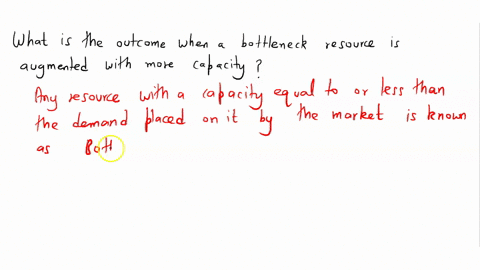 What is the outcome when a bottleneck resource is
augmented with more capacity ?
Any resource with a capacity equal to or less than
the demand placed on it by the market is known
as Bott